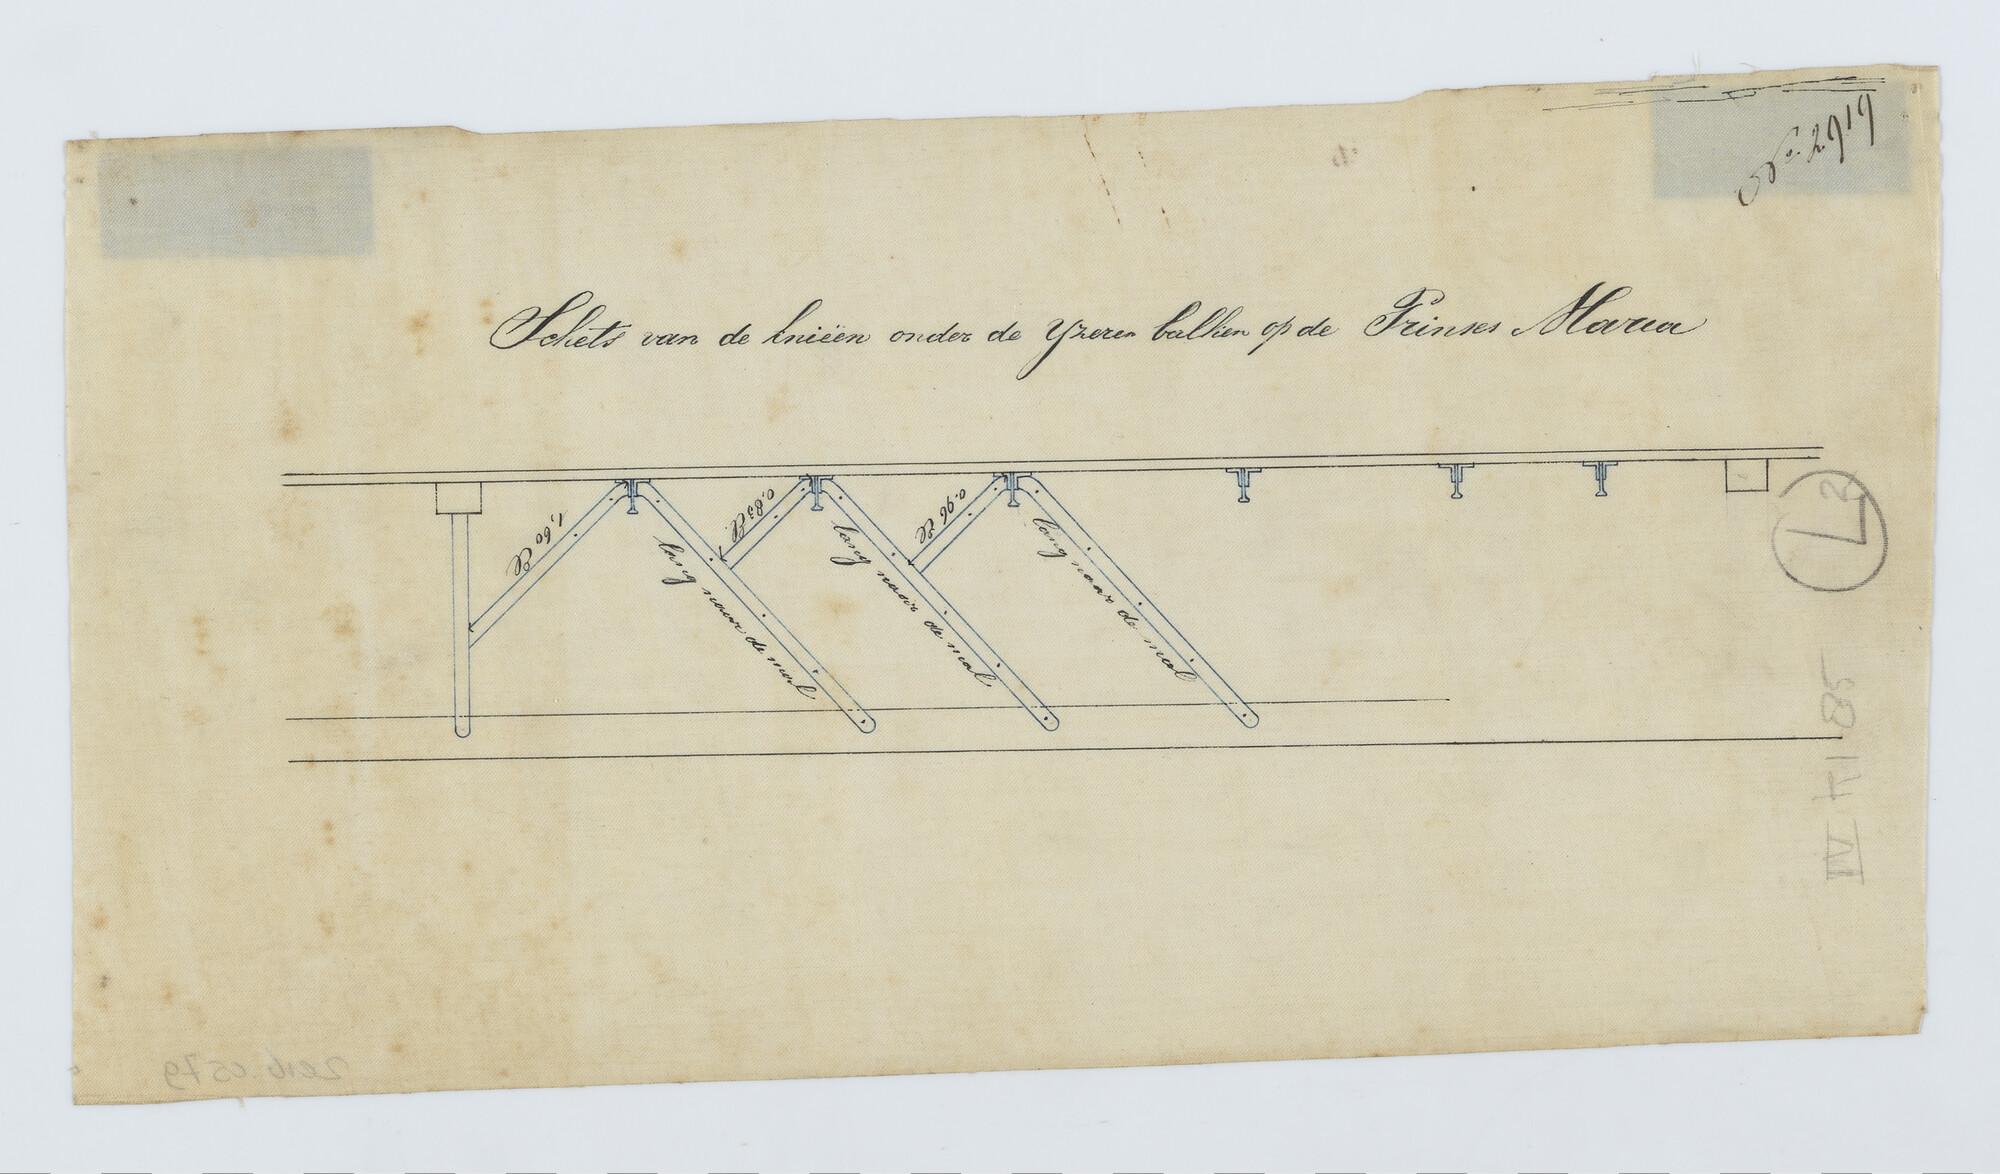 No. 2919
Schets van de knieën onder de Yzeren balken op de Prinses Maria
1,60 El
0.83 El.
0.96 El
lang naar de mal
lang naar de mal
lang naar de mal